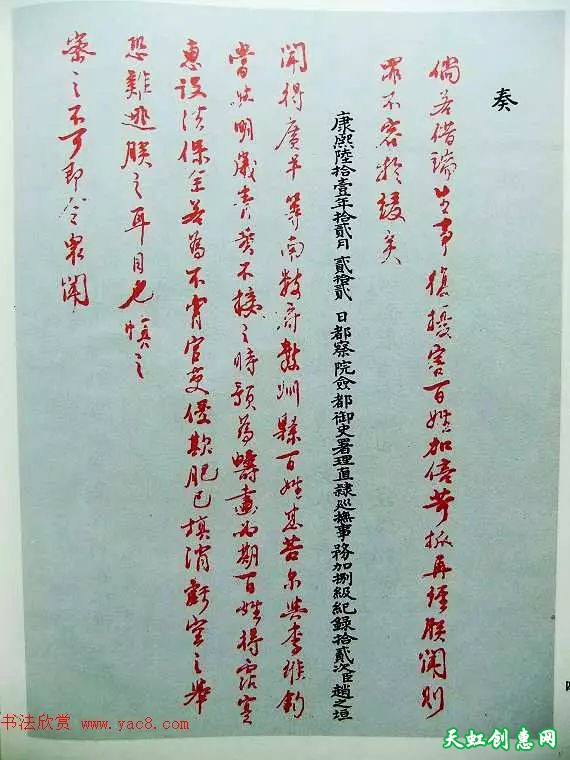 奏
倘若借端生事復擾害百姓加倍苛派再經朕聞則
罪不容於矣
康熙陸拾壹年拾貳月 貳拾貳 日都察院僉都御史署理直隸巡撫事務加捌級紀錄拾貳次臣趙之垣
聞得廣平等南数府数州縣百姓甚苦尔與李維鈞
將明歲青黄不接之時預為籌畫為期百姓得霑實
惠設法保全若為不肖官吏侵欺肥己填消虧空之舉
恐難逃朕之耳目也慎之
密之不可即令衆聞
书法欣赏 www.yac8.com
天虹创惠网